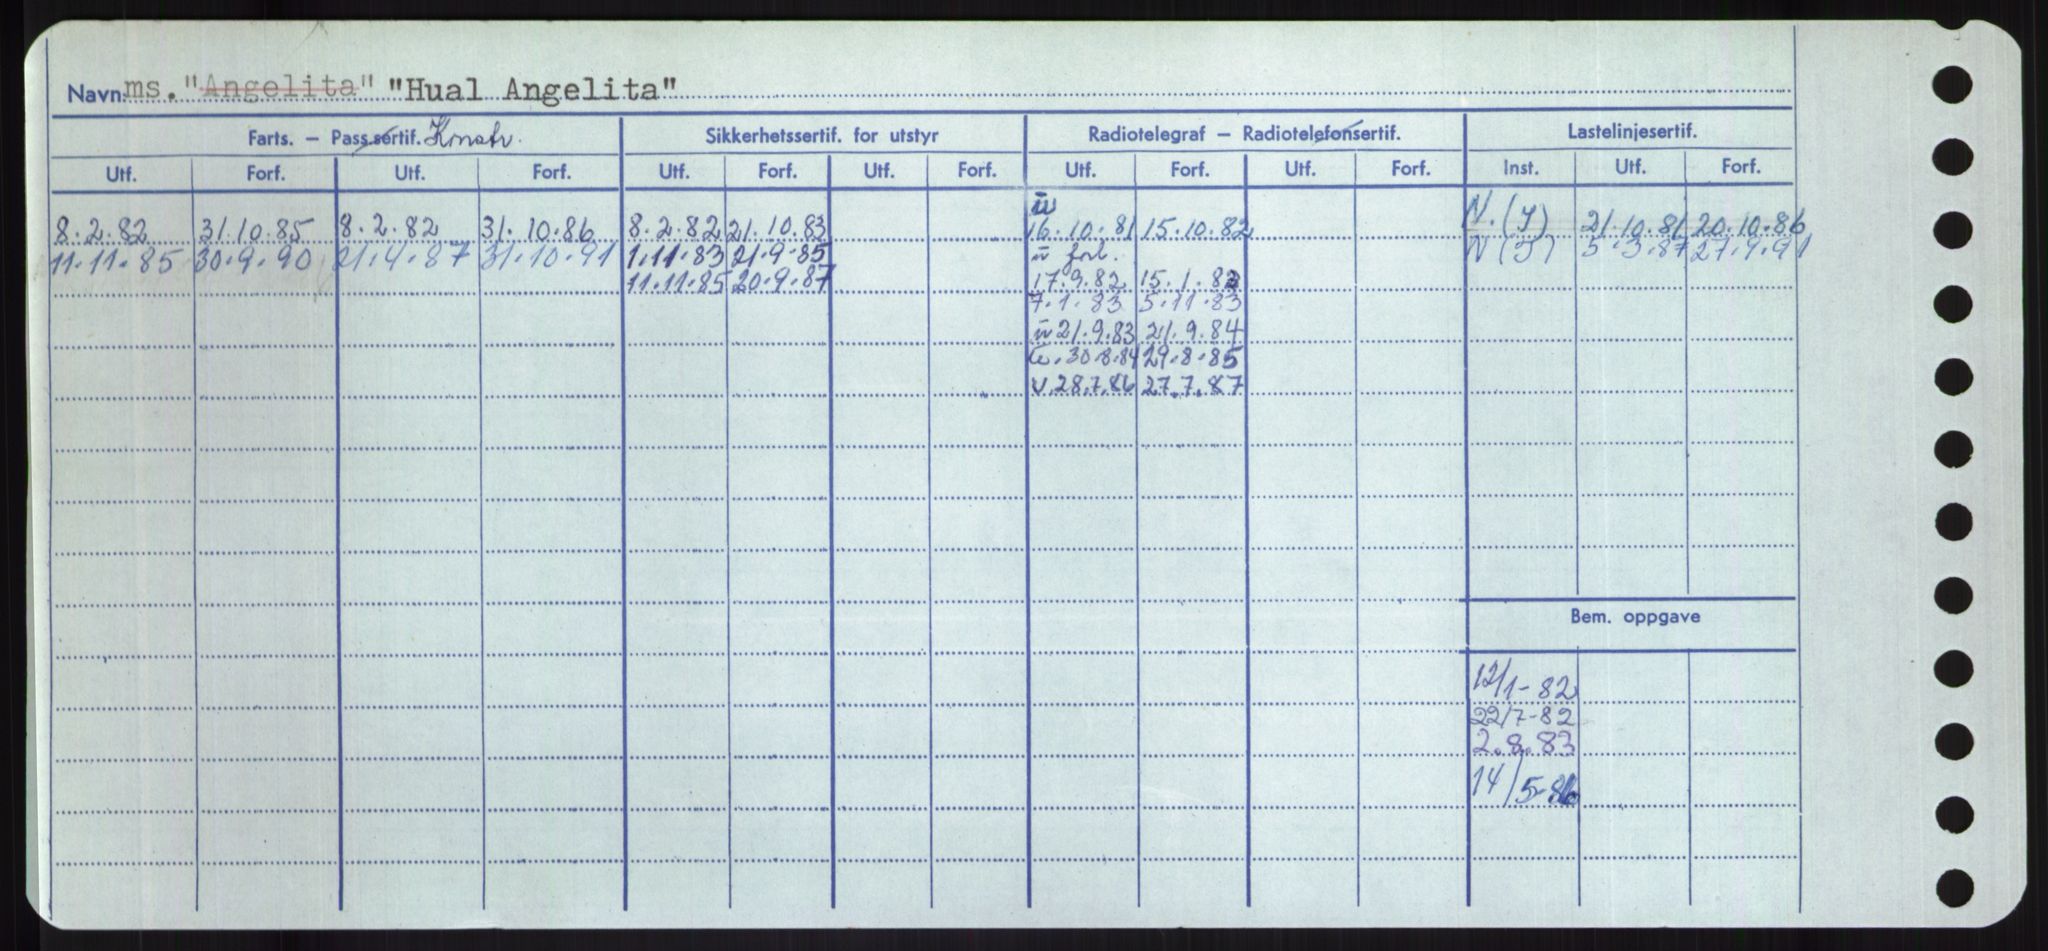 Navn ms. "Angelita" "Hual Angelita"
Farts. – Pass.sertif. Konstr. Sikkerhetssertif. for utstyr Radiotelegraf – Radiotelefonsertif. Lastelinjesertif.
Utf. Forf. Utf. Forf. Utf. Forf. Utf. Forf. Utf. Forf. Utf. Forf. Inst. Utf. Forf.
8.2.82 31.10.85 8.2.82 31.10.86 8.2.82 21.10.83 16.10.81 15.10.82 N.(I) 21.10.81 20.10.86
11.11.85 30.9.90 21.4.87 31.10.91 1.11.83 21.9.85 forl. N(I) 5.3.87 27.9.91
11.11.85 20.9.87 17.9.82 15.1.83
7.1.83 5.11.83
21.9.83 21.9.84
30.8.84 29.8.85
v.28.7.86 27.7.87
Bem. oppgave
12/1-82
22/7-82
2.8.83
14/5-86